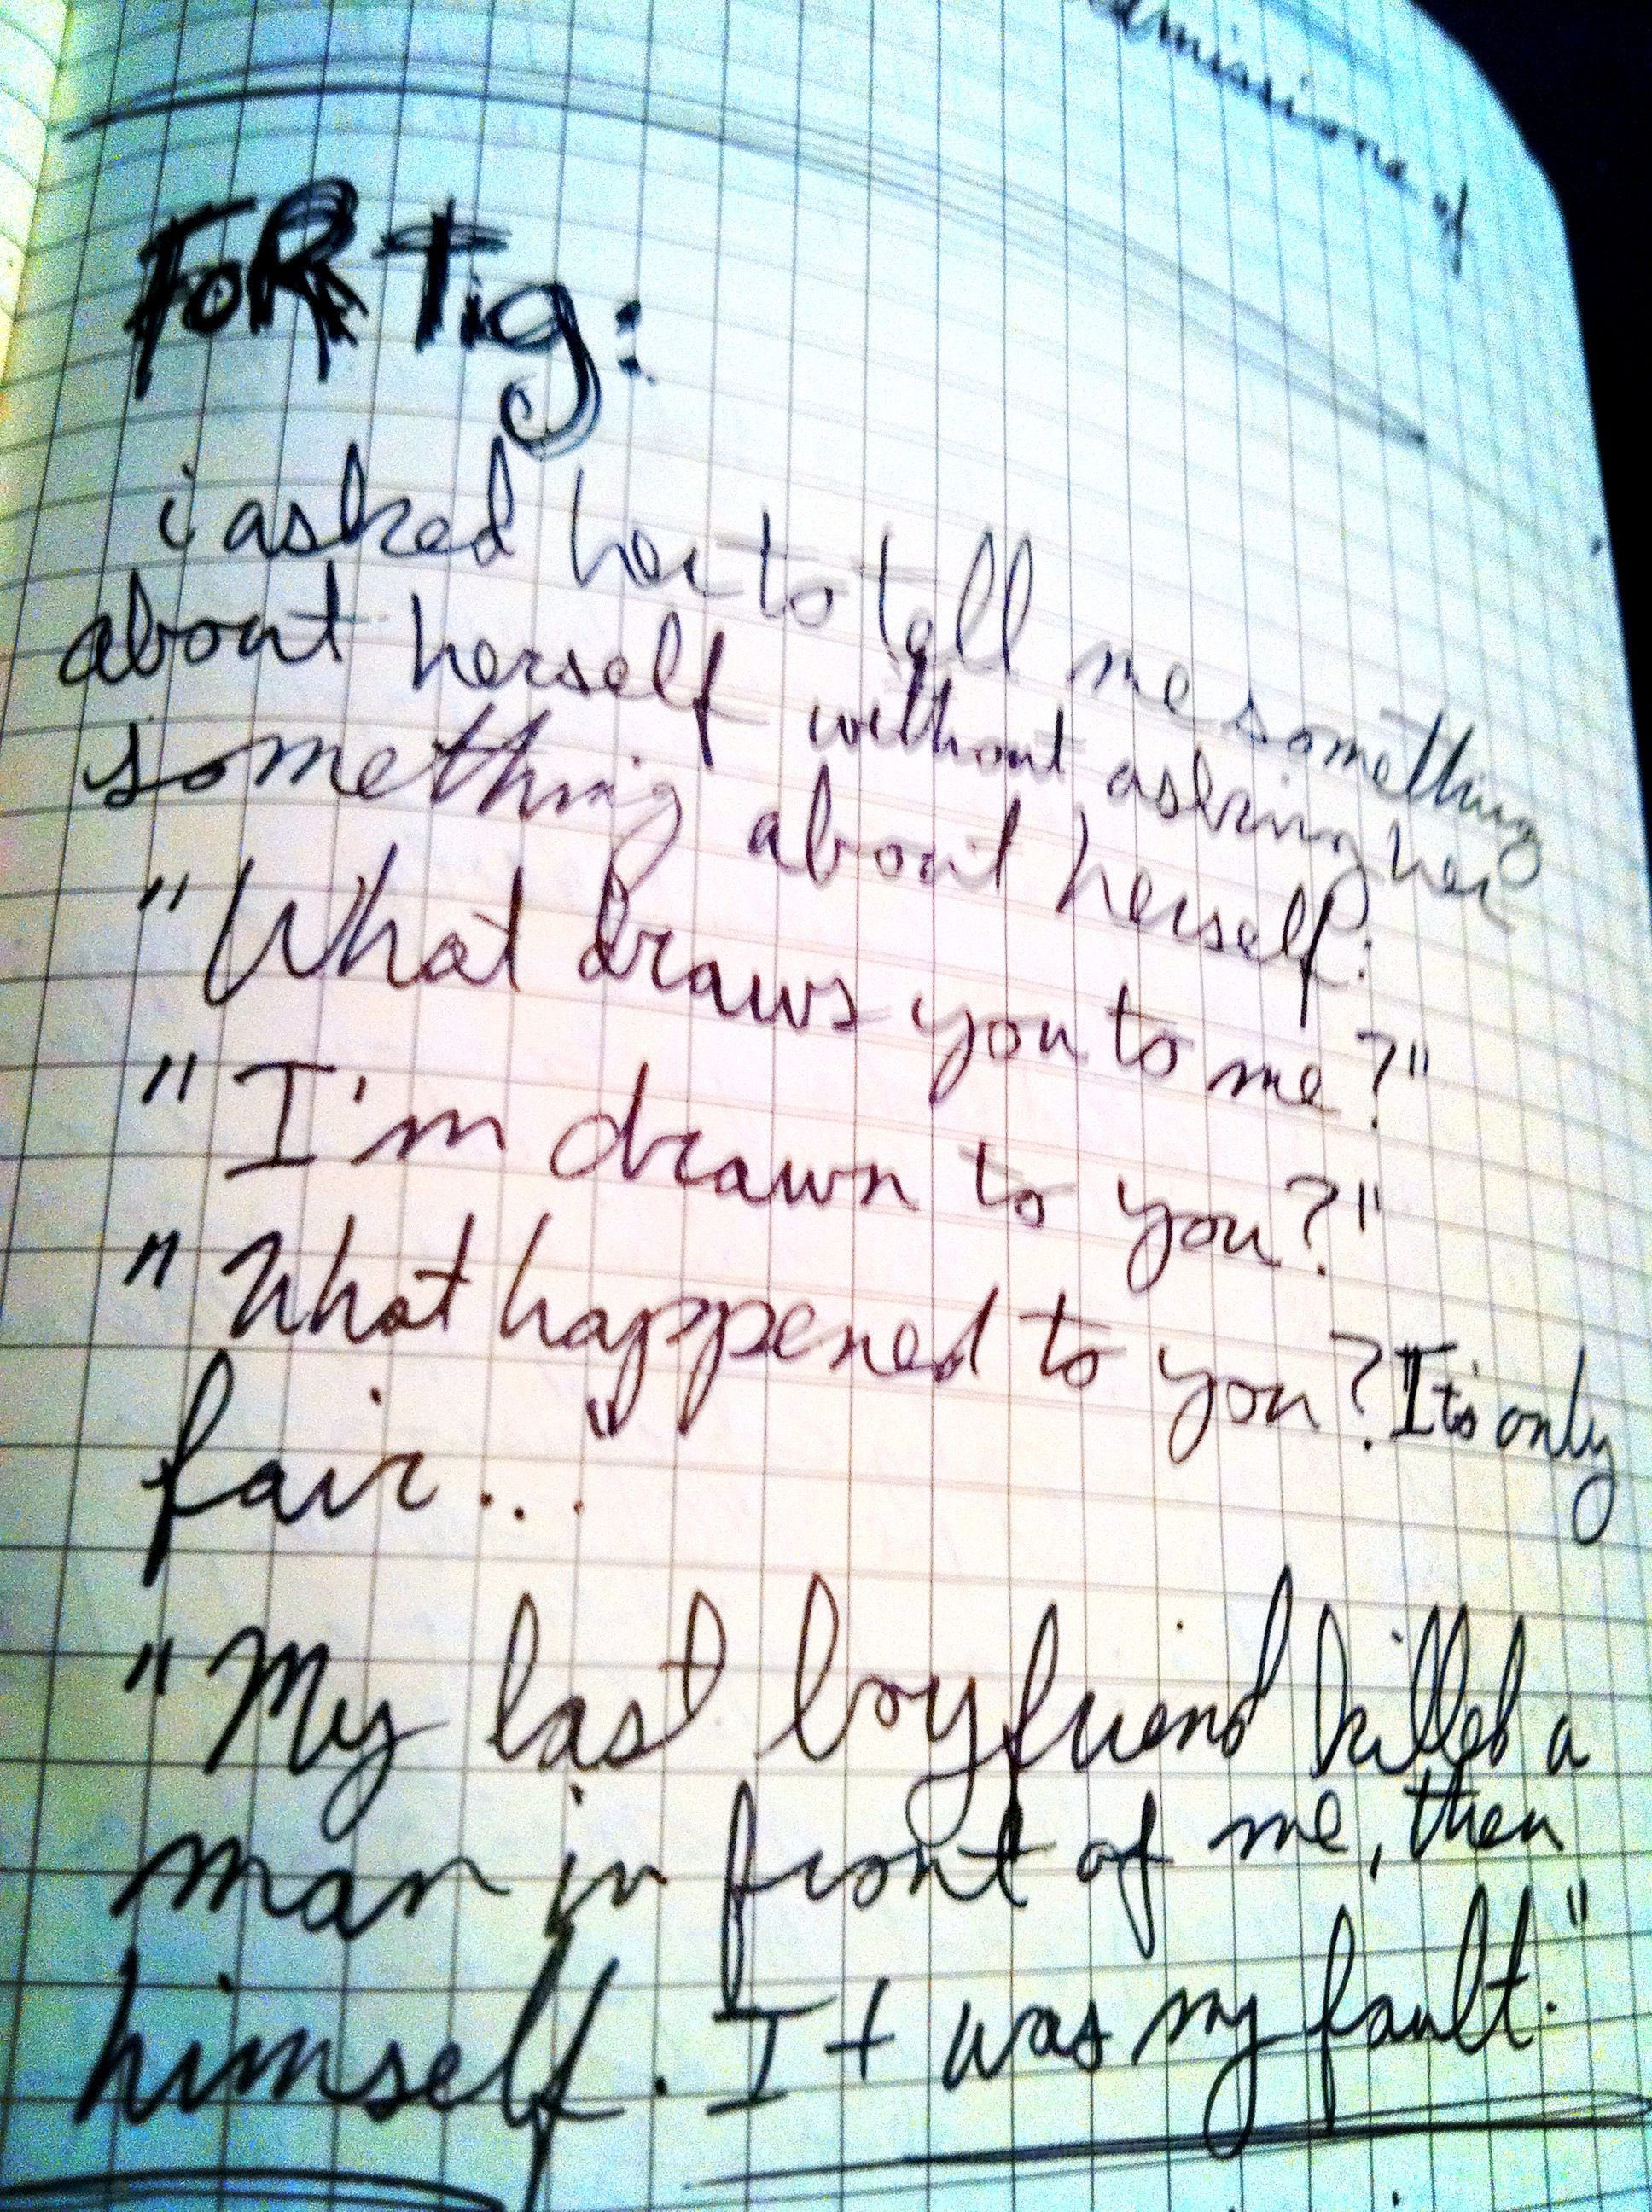 FOR Tig:
i asked her to tell me something
about herself without asking her
something about herself:
"What draws you to me?"
"I'm drawn to you?"
"What happened to you? It's only
fair..."
"My last boyfriend killed a
man in front of me, then
himself. It was my fault."